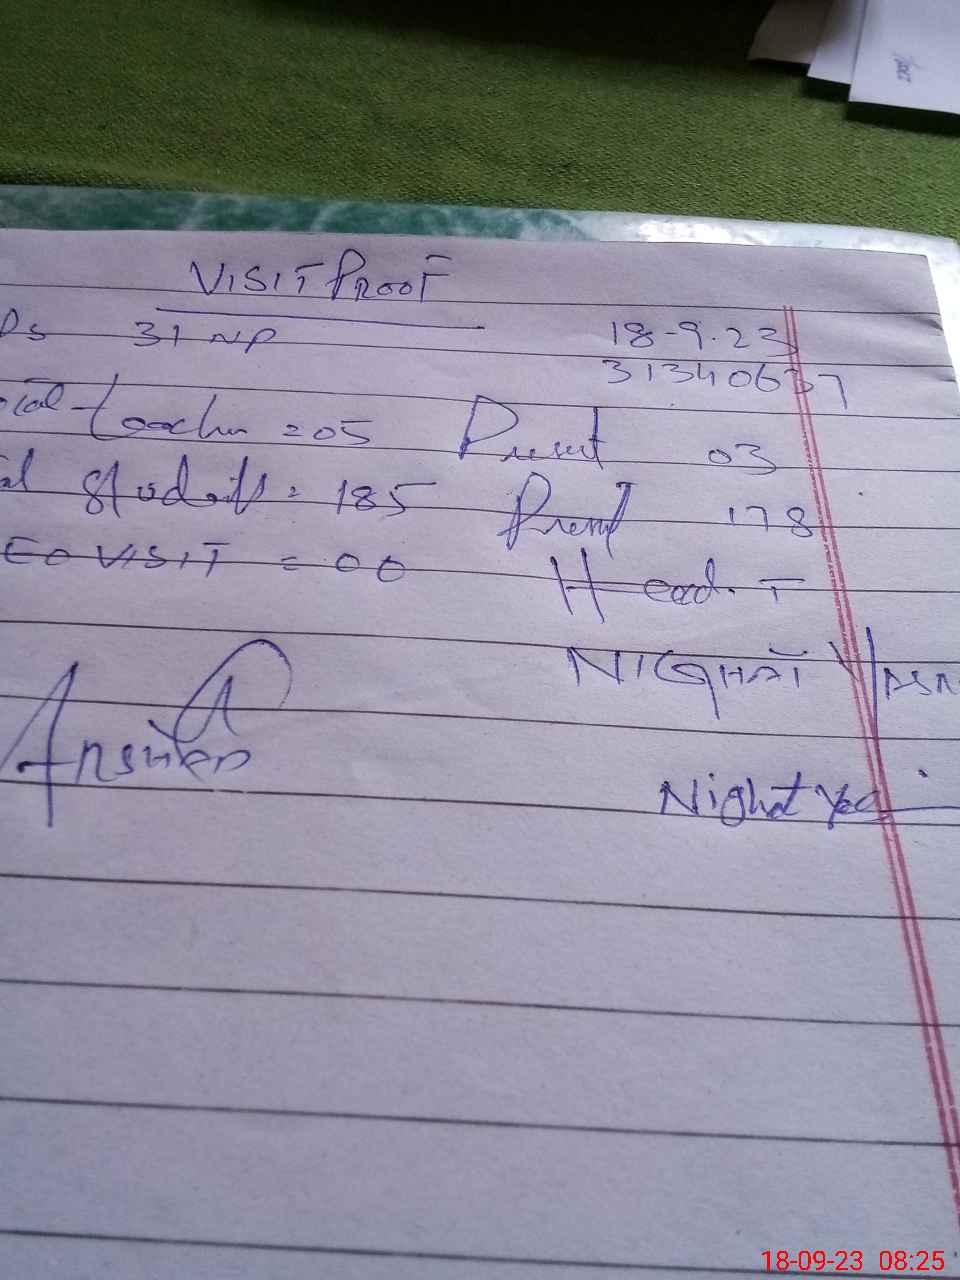 VISIT PROOF
Ps 31 NP 18-9.23
31340637
otal teacher = 05 Present 03
al students = 185 Present 178
EO VISIT = 00 Head. T
NIGHAT YASM
Nighat Yas
18-09-23 08:25